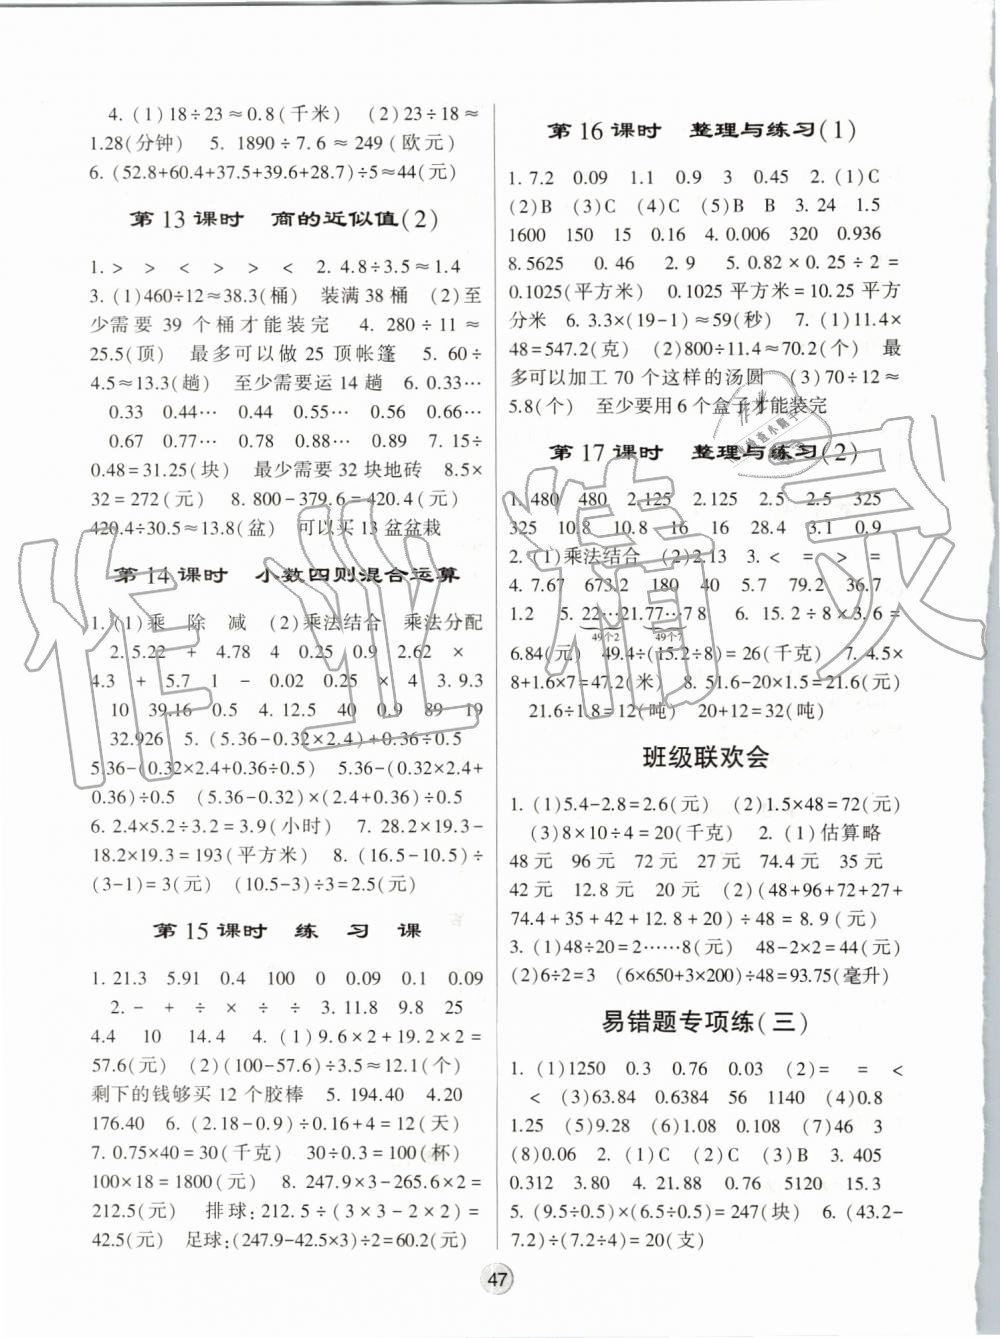 4. (1)18÷23≈0.8(千米) (2)23÷18≈
1.28(分钟) 5. 1890÷7.6≈249(欧元)
6. (52.8+60.4+37.5+39.6+28.7)÷5≈44(元)
第13课时 商的近似值(2)
1. > > < > > < 2. 4.8÷3.5≈1.4
3. (1)460÷12≈38.3(桶) 装满38桶 (2)至
少需要39个桶才能装完 4. 280÷11≈
25.5(顶) 最多可以做25顶帐篷 5. 60÷
4.5≈13.3(趟) 至少需要运14趟 6. 0.33···
0.33 0.44··· 0.44 0.66··· 0.66 0.66···
0.67 0.77··· 0.78 0.88··· 0.88 7. 15÷
0.48=31.25(块) 最少需要32块地砖 8.5×
32=272(元) 8. 800-379.6=420.4(元)
420.4÷30.5≈13.8(盆) 可以买13盆盆栽
第14课时 小数四则混合运算
1. (1)乘 除 减 (2)乘法结合 乘法分配
2. 5.22 + 4.78 4 0.25 0.9 2.62 ×
4.3 + 5.7 1 - 0.02 0.25 × 4 3. 9.3
10 39.16 0.5 4. 12.5 40 0.9 89 19
32.926 5. (5.36-0.32×2.4)+0.36÷0.5
5.36-(0.32×2.4+0.36÷0.5) 5.36-(0.32×2.4+
0.36)÷0.5 (5.36-0.32)×(2.4+0.36)÷0.5
6. 2.4×5.2÷3.2=3.9(小时) 7. 28.2×19.3-
18.2×19.3=193(平方米) 8. (16.5-10.5)÷
(3-1)=3(元) (10.5-3)÷3=2.5(元)
第15课时 练 习 课
1. 21.3 5.91 0.4 100 0 0.09 0.1 0.09
2. - + ÷ × ÷ ÷ 3. 11.8 9.8 25
4.4 10 14.4 4. (1)9.6×2+19.2×2=
57.6(元) (2)(100-57.6)÷3.5≈12.1(个)
剩下的钱够买12个胶棒 5. 194.40 4.20
176.40 6. (2.18-0.9)÷0.16+4=12(天)
7. 0.75×40=30(千克) 30÷0.3=100(杯)
100×18=1800(元) 8. 247.9×3-265.6×2=
212.5(元) 排球:212.5÷(3×3-2×2)=
42.5(元) 足球:(247.9-42.5×3)÷2=60.2(元)
第16课时 整理与练习(1)
1. 7.2 0.09 1.1 0.9 3 0.45 2. (1)C
(2)B (3)C (4)C (5)B B 3. 24 1.5
1600 150 15 0.16 4. 0.006 320 0.936
8.5625 0.46 2.9 5. 0.82×0.25÷2=
0.1025(平方米) 0.1025平方米=10.25平方
分米 6. 3.3×(19-1)≈59(秒) 7. (1)11.4×
48=547.2(克) (2)800÷11.4≈70.2(个) 最
多可以加工70个这样的汤圆 (3)70÷12≈
5.8(个) 至少要用6个盒子才能装完
第17课时 整理与练习(2)
1. 480 480 2.125 2.125 2.5 2.5 325
325 10.8 10.8 16 16 28.4 3.1 0.9
2. (1)乘法结合 (2)2.13 3. < = > =
4. 7.67 673.2 180 40 5.7 79.2 36.7
1.2 5. 22···21.77···78 6. 15.2÷8×3.6=
49个2 49个7
6.84(元) 49.4÷(15.2÷8)=26(千克) 7. 4.5×
8+1.6×7=47.2(米) 8. 51.6-20×1.5=21.6(元)
21.6÷1.8=12(吨) 20+12=32(吨)
班级联欢会
1. (1)5.4-2.8=2.6(元) (2)1.5×48=72(元)
(3)8×10÷4=20(千克) 2. (1)估算略
48元 96元 72元 27元 74.4元 35元
42元 12.8元 20元 (2)(48+96+72+27+
74.4+35+42+12.8+20)÷48=8.9(元)
3. (1)48÷20=2······8(元) 48-2×2=44(元)
(2)6÷2=3 (6×650+3×200)÷48=93.75(毫升)
易错题专项练(三)
1. (1)1250 0.3 0.76 0.03 (2)= = <
< (3)63.84 0.6384 56 1140 (4)0.8
1.25 (5)9.28 (6)1.08 0.108 (7)46 3
(8)0.06 2. (1)C (2)C (3)B 3. 405
0.312 3.80 4. 21.88 0.76 5120 15.3
5. (9.5÷0.5)×(6.5÷0.5)=247(块) 6. (43.2-
7.2)÷(7.2÷4)=20(支)
47
作业精灵